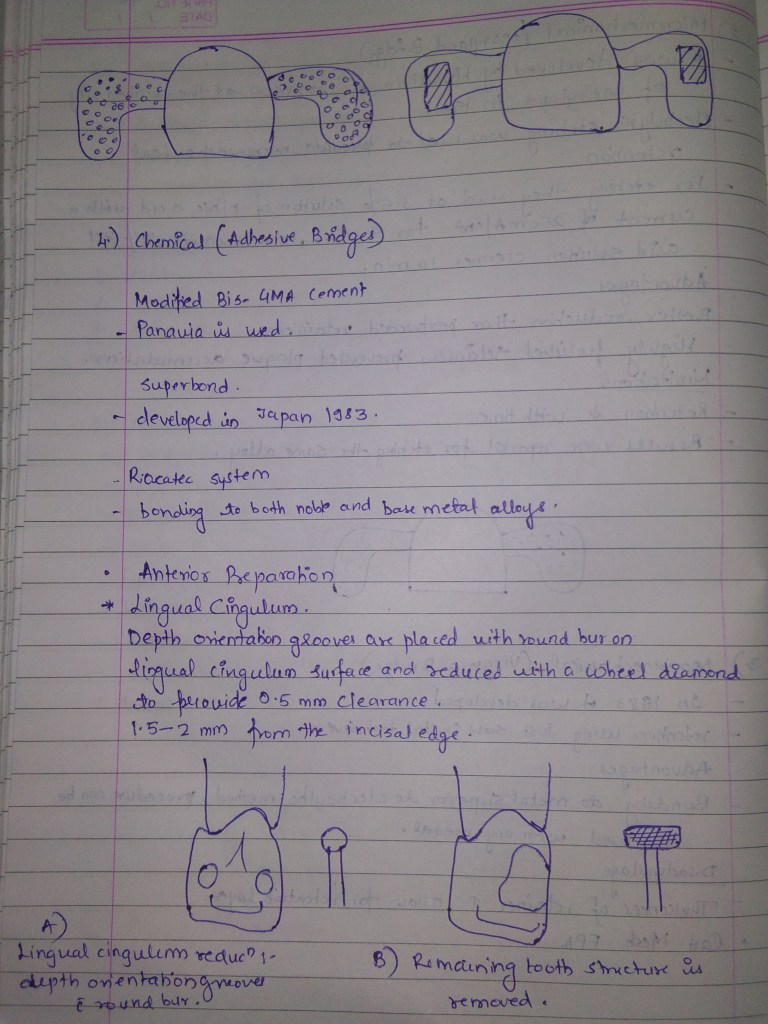 DATE
4) Chemical (Adhesive Bridges)
Modified Bis-GMA cement
- Panavia is used.
Superbond.
- developed in Japan 1983.
- Riocatec system
- bonding to both noble and base metal alloys.
• Anterior Preparation
* Lingual Cingulum.
Depth orientation grooves are placed with round bur on
lingual cingulum surface and reduced with a wheel diamond
to provide 0.5 mm clearance.
1.5-2 mm from the incisal edge.
A)
Lingual cingulum reducn :-
depth orientation grooves
c̄ round bur.
B) Remaining tooth structure is
removed.